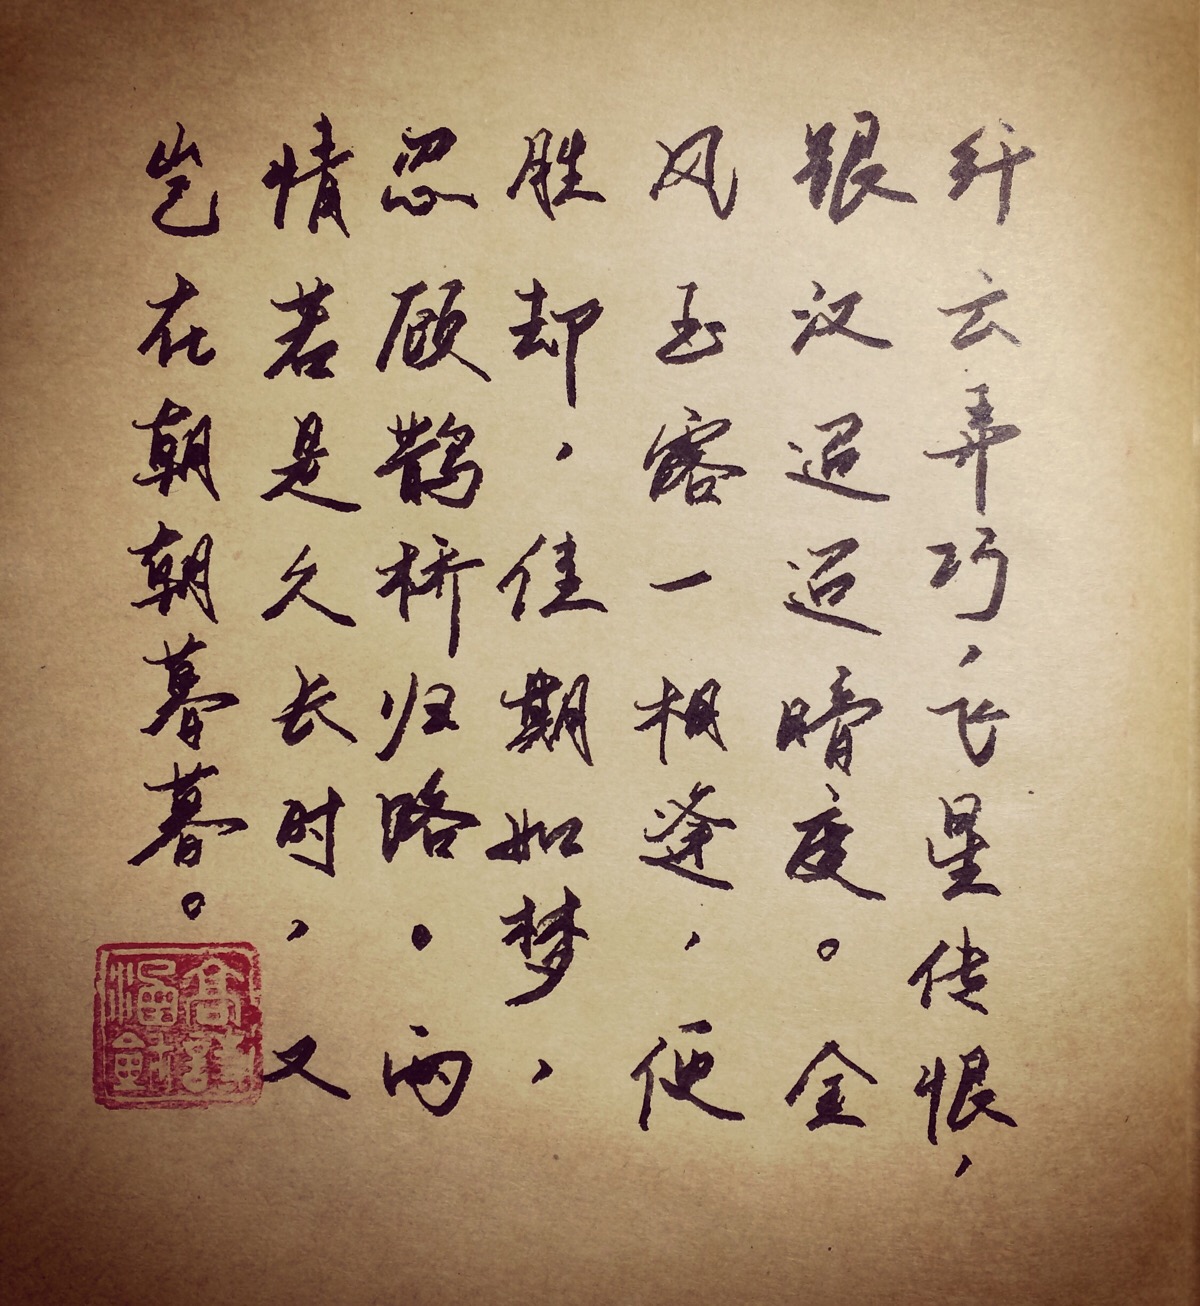 纤云弄巧，飞星传恨，
银汉迢迢暗度。金
风玉露一相逢，便
胜却，佳期如梦，
忍顾鹊桥归路。两
情若是久长时，又
岂在朝朝暮暮。